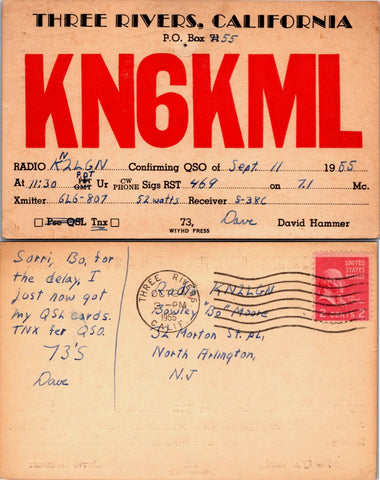 THREE RIVERS, CALIFORNIA
P.O. Box 71 55
KN6KML
RADIO KN2LGN Confirming QSO of Sept. 11 1955
At 11:30 PDT Ur CW PHONE Sigs RST 469 on 7.1 Mc.
Xmitter 6L6-807 52 watts Receiver S-38C
Pse QSL Tnx 73, Dave David Hammer
WIYHD PRESS
Sorri, Bo, for
the delay, I
just now got
my QSL cards.
TNX for QSO.
73'S
Dave
THREE RIVERS
PM
1955
CALIF.
UNITED
STATES
2 CENTS 2
Radio KN2LGN
Bowley "Bo" Moore
32 Morton St. pl,
North Arlington,
N.J